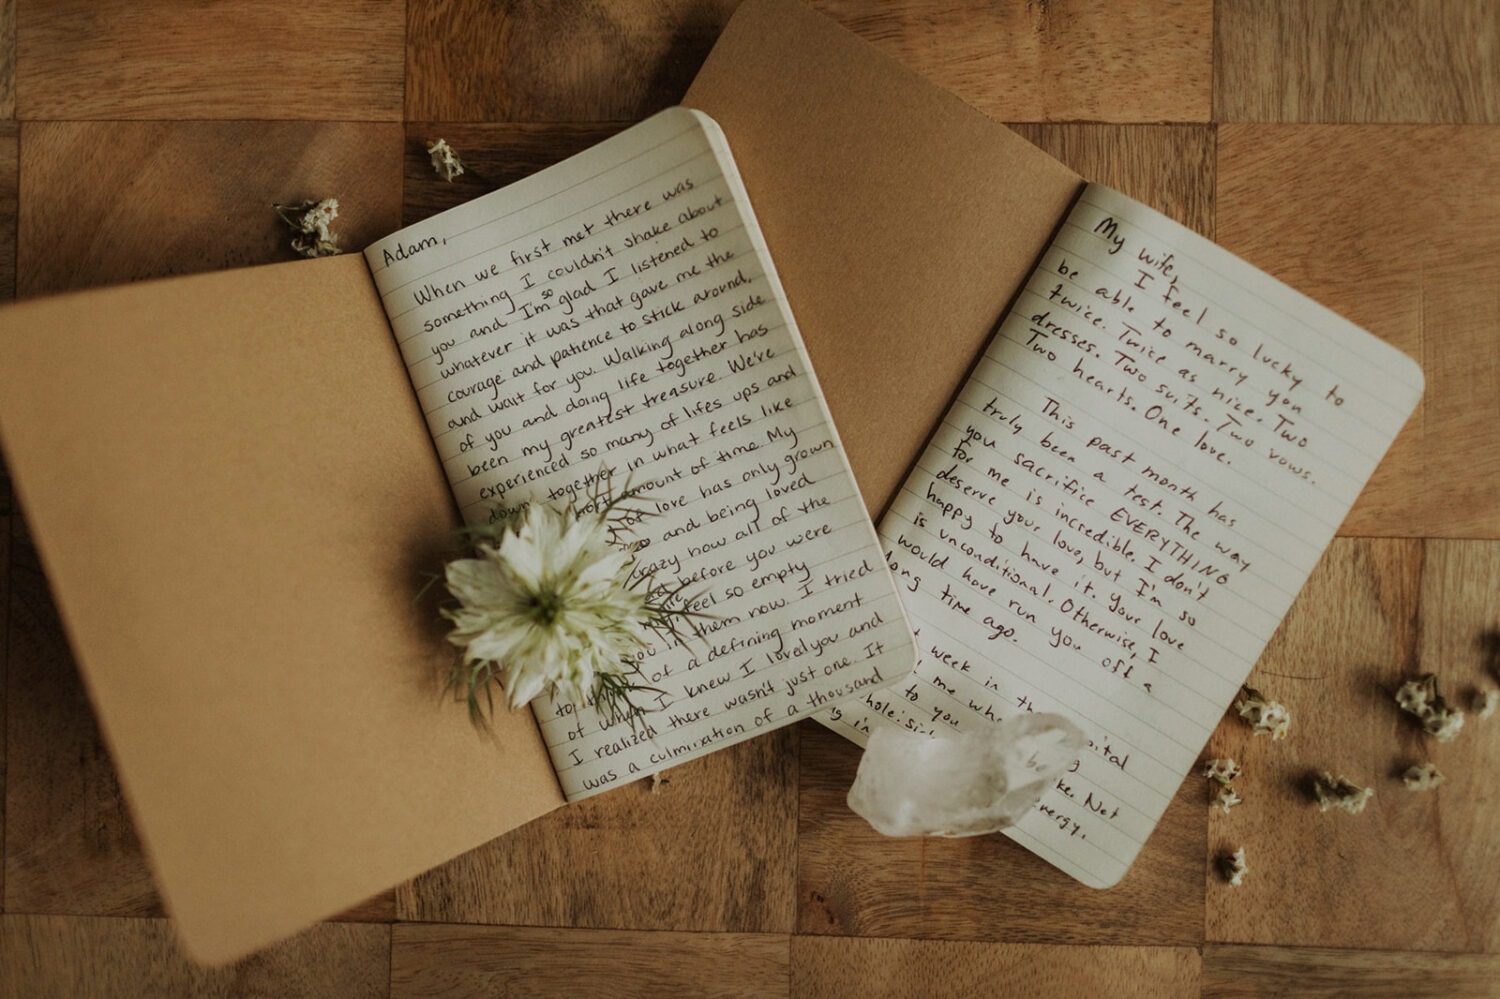 Adam,
When we first met there was
something I couldn't shake about
you and I'm so glad I listened to
whatever it was that gave me the
courage and patience to stick around,
and wait for you. Walking along side
of you and doing life together has
been my greatest treasure. We've
experienced so many of lifes ups and
down together in what feels like
amount of time. My
of love has only grown
and being loved
crazy how all of the
before you were
feel so empty
you in them now. I tried
to think of a defining moment
of when I knew I loved you and
I realized there wasn't just one. It
was a culmination of a thousand
My wife,
I feel so lucky to
be able to marry you
twice. Twice as nice. Two
dresses. Two suits. Two vows.
Two hearts. One love.
This past month has
truly been a test. The way
you sacrifice EVERYTHING
for me is incredible. I don't
deserve your love, but I'm so
happy to have it. Your love
is unconditional. Otherwise, I
would have run you off a
long time ago.
week in th
me whe
to you
be
ke. Not